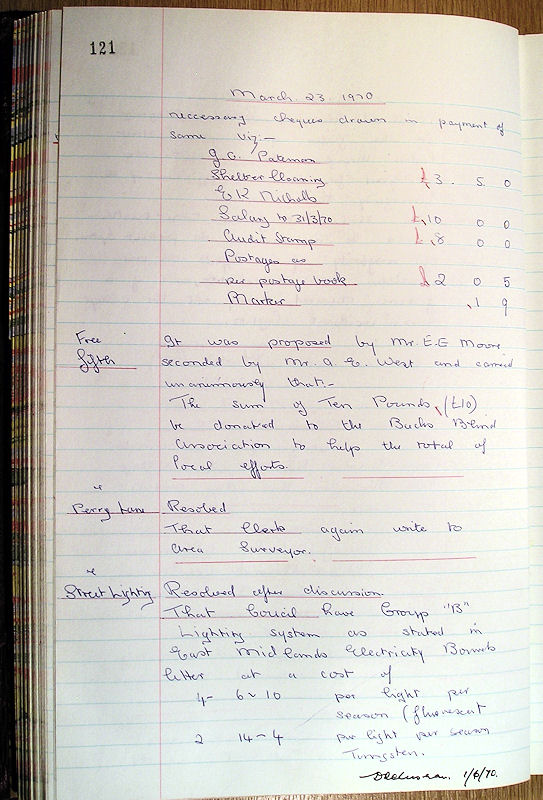 121
March 23 1970
necessary cheques drawn in payment of
same viz:-
Shelter Cleaning £3. 5 0
E K Nicholls
Salary to 31/3/70 £10 0 0
Audit Stamp £8 0 0
Postages as
per postage book £2 0 5
Marker 1 9
Free It was proposed by Mr. E.E Moore
fifth seconded by Mr. A. E. West and carried
unanimously that:-
The sum of Ten Pounds (£10)
be donated to the Bucks Blind
Association to help the total of
local efforts.
Perry Lane Resolved
That Clerk again write to
Area Surveyor.
Street Lighting Resolved after discussion
That Coucil have Group "B"
Lighting system as stated in
East Midlands Electricity Boards
letter at a cost of
4- 6-10 per light per
season (fluorescent
2 14-4 per light per season
Tungsten.
1/6/70.